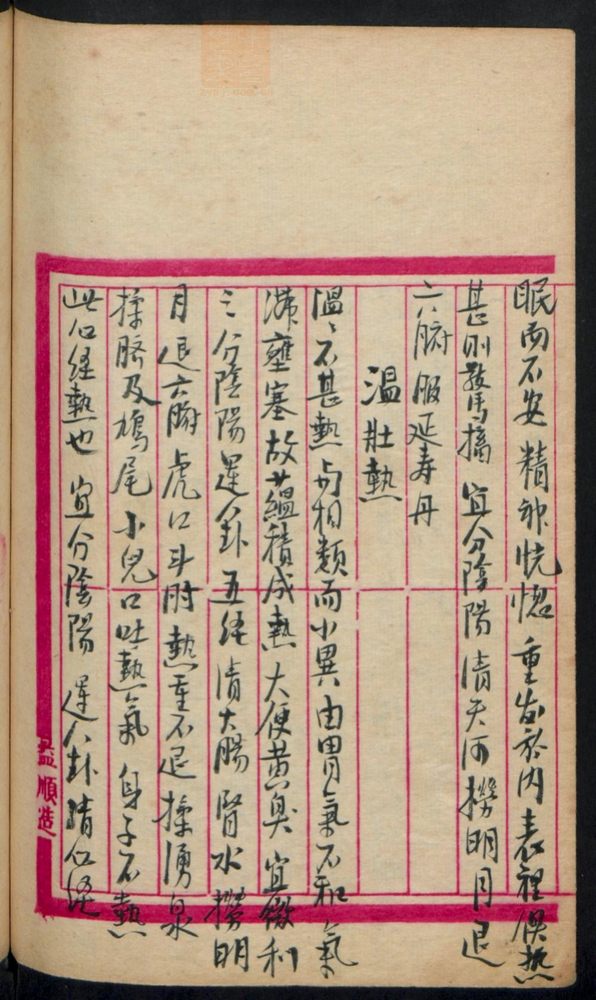 眠而不安 精神恍惚 重发於內 表裡俱热
甚則驚搐 宜分陰陽 清天河 撈明月 退
六腑 服延寿丹
溫壯熱
溫〻不甚熱 与相類而小異 由胃氣不和 氣
滞壅塞 故蘊積成熱 大便黄臭 宜微利
之 分陰陽 運八卦 五经 清大腸 腎水 撈明
月 退六腑 虎口 斗肘 熱重不退 揉湧泉
揉臍及鳩尾 小兒口吐熱氣 身子不熱
此心経熱也 宜分陰陽 運八卦 清心经
益順造